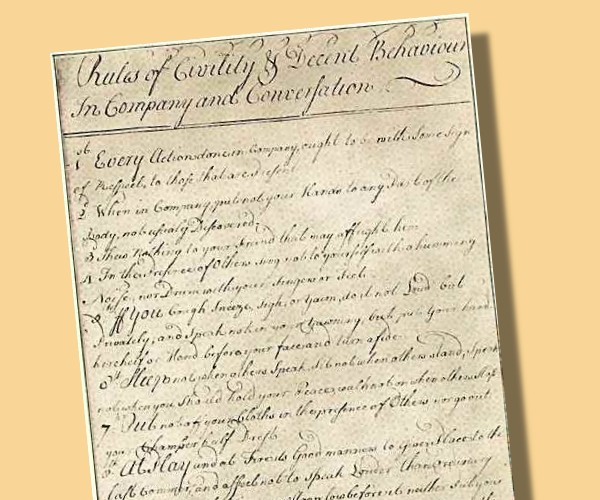 Rules of Civility & Decent Behaviour
In Company and Conversation
1st Every Action done in Company, ought to be with Some Sign
of Respect, to those that are Present.
2d When in Company, put not your Hands to any Part of the
Body, not usualy Discovered.
3 Shew Nothing to your Friend that may affright him
4 In the Presence of Others sing not to yourself with a humming
Noise, nor Drum with your Fingers or Feet.
5th If You Cough, Sneeze, Sigh, or Yawn, do it not Loud but
Privately; and Speak not in your Yawning, but put Your hand
kercheif or Hand before your face and turn aside
6th Sleep not when others Speak, Sit not when others stand, Speak
not when you Should hold your Peace, walk not on when others Stop
7 Put not off your Cloths in the presence of Others, nor go out
your Chamber half Drest
8th At Play and at Fire its Good manners to give Place to the
last Commer, and affect not to Speak Louder than Ordinary